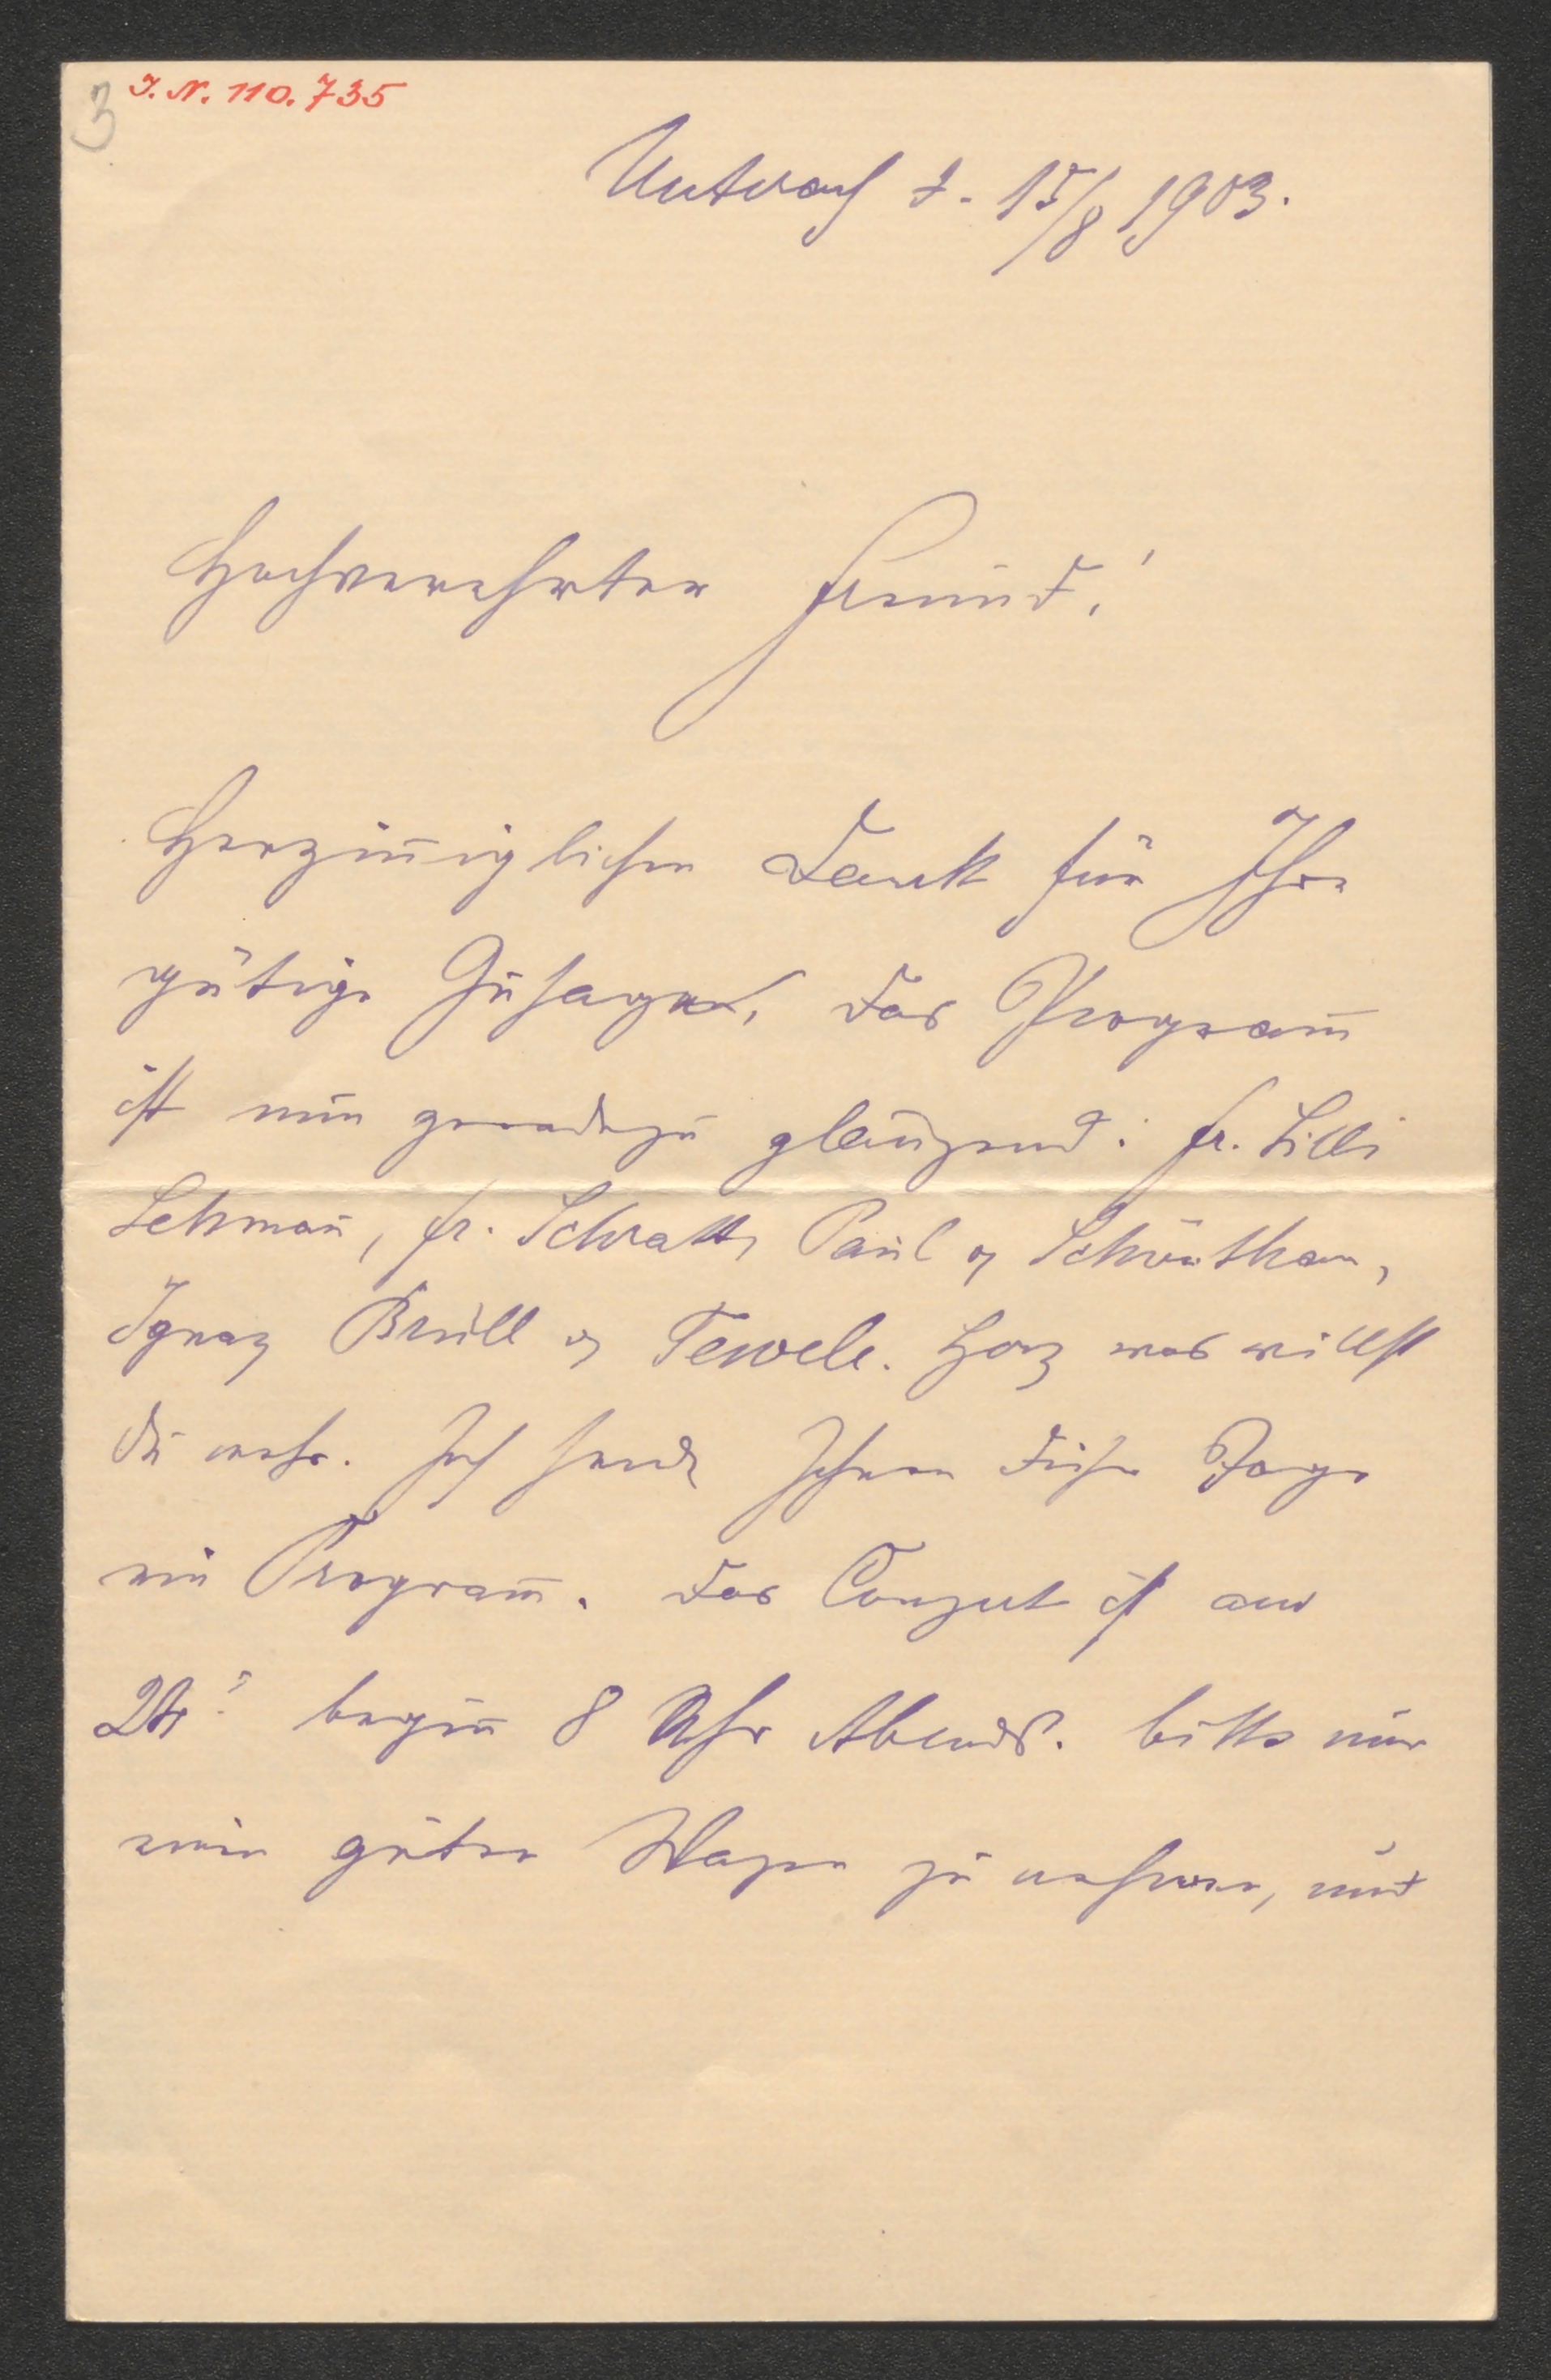 3
I. N. 110.735
Unterach d. 15/8 1903.
Hochverehrter Freund!
Herzin̅iglichen Dank für Ihre
gütige Zusage. Das Program̅
ist nun geradezu glänzend: Fr. Lilli
Lehman̅, Fr. Schratt, Paul & Schönthan,
Ignaz Brüll & Tewele. Herz was willst
du mehr. Ich sende Ihnen diese Tage
ein Program̅. Das Conzert ist am
begin̅ 8 Uhr Abends. bitte nur
einen guten Wagen zu nehmen, und